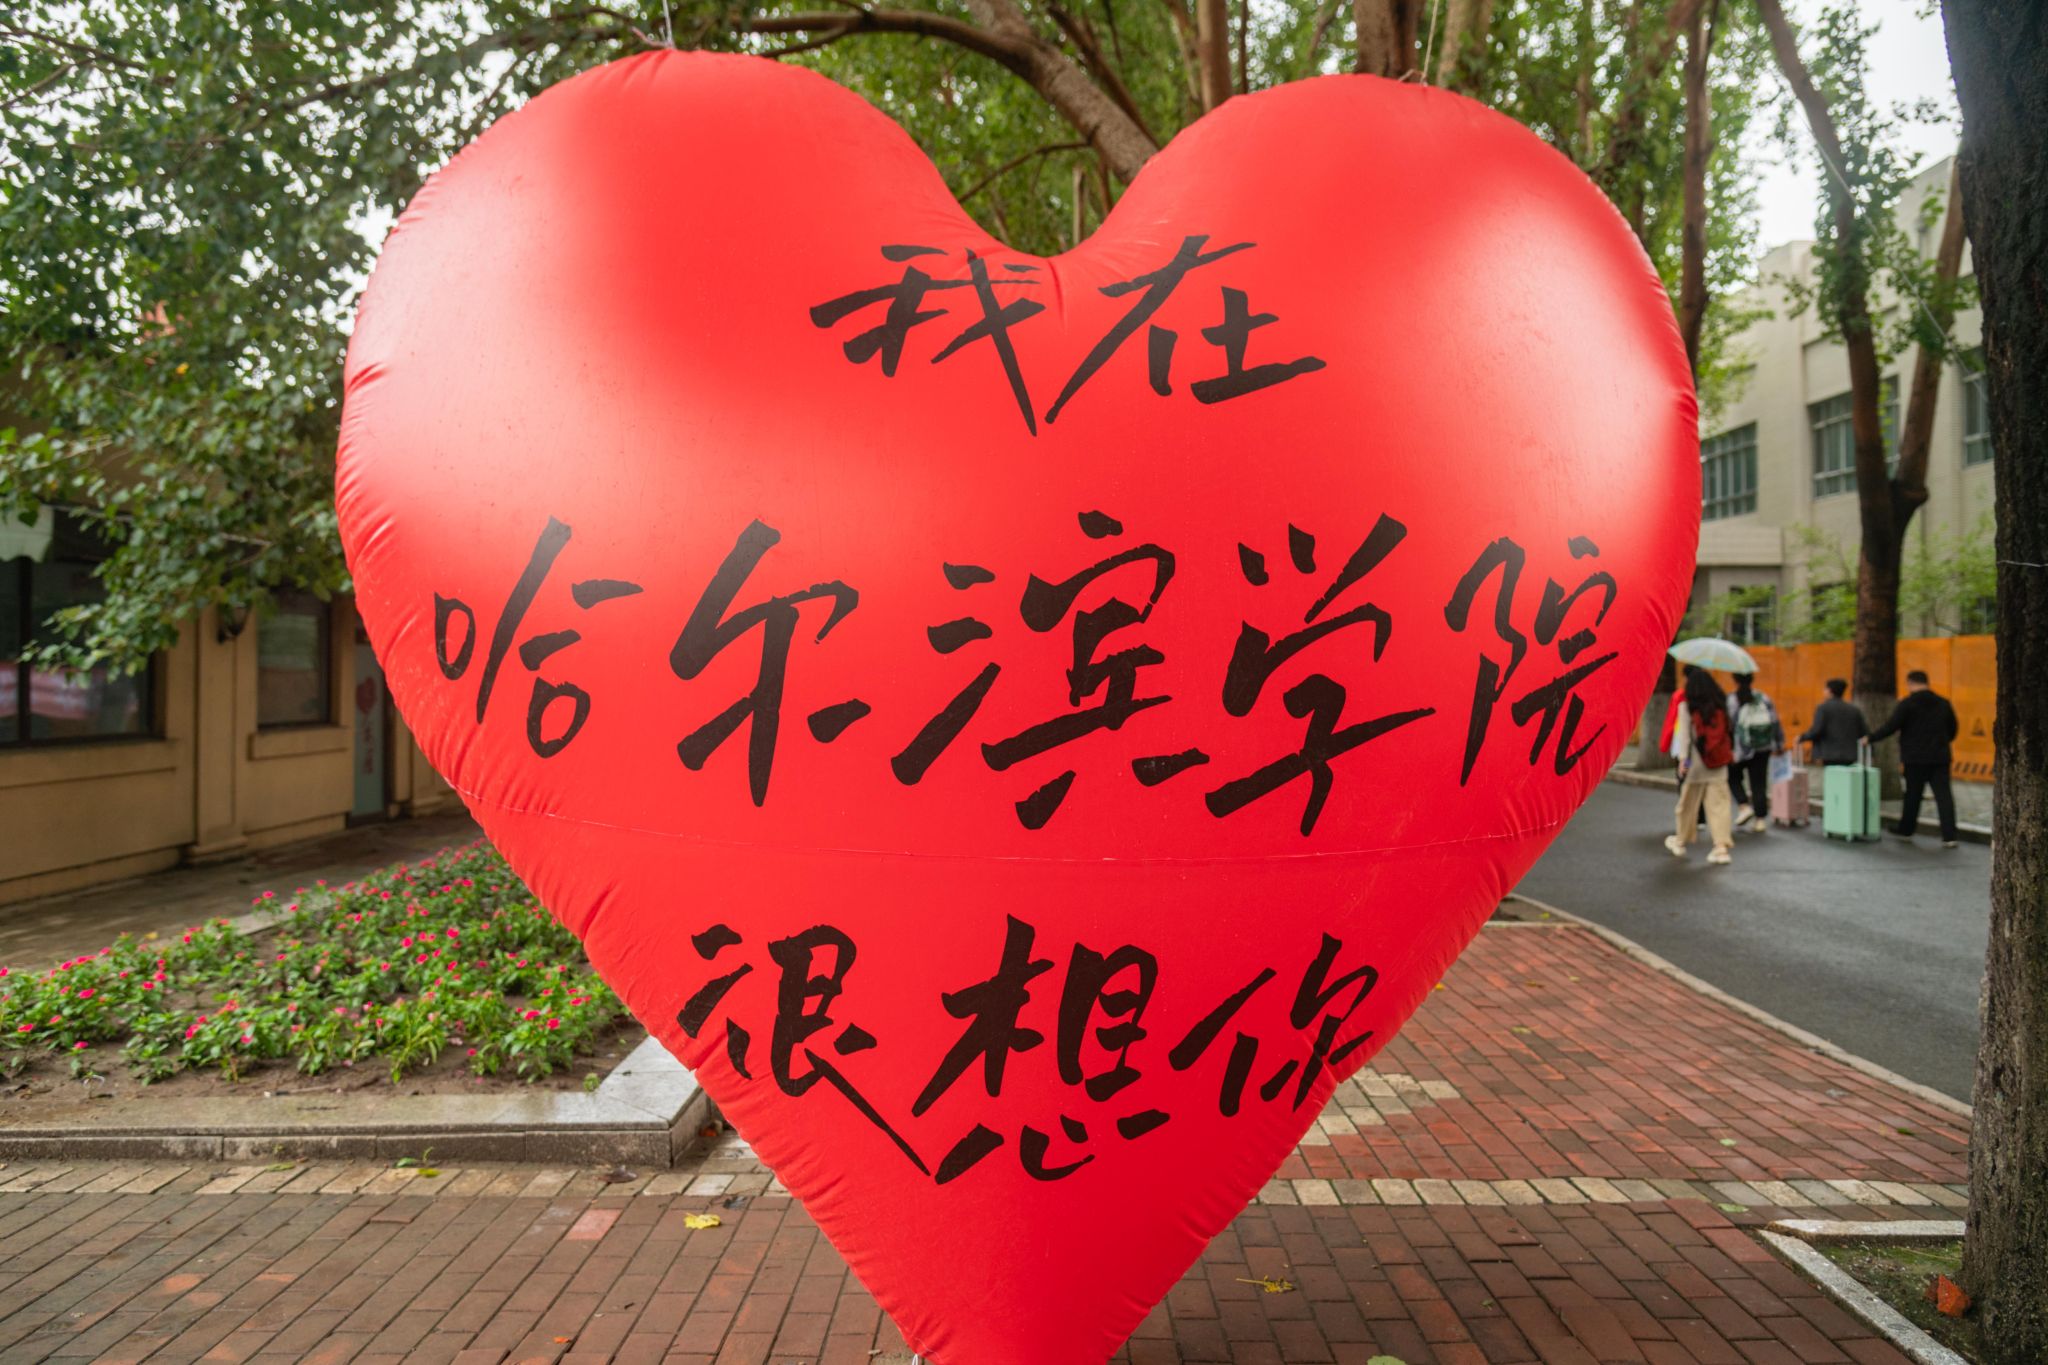 我在
哈尔滨学院
很想你